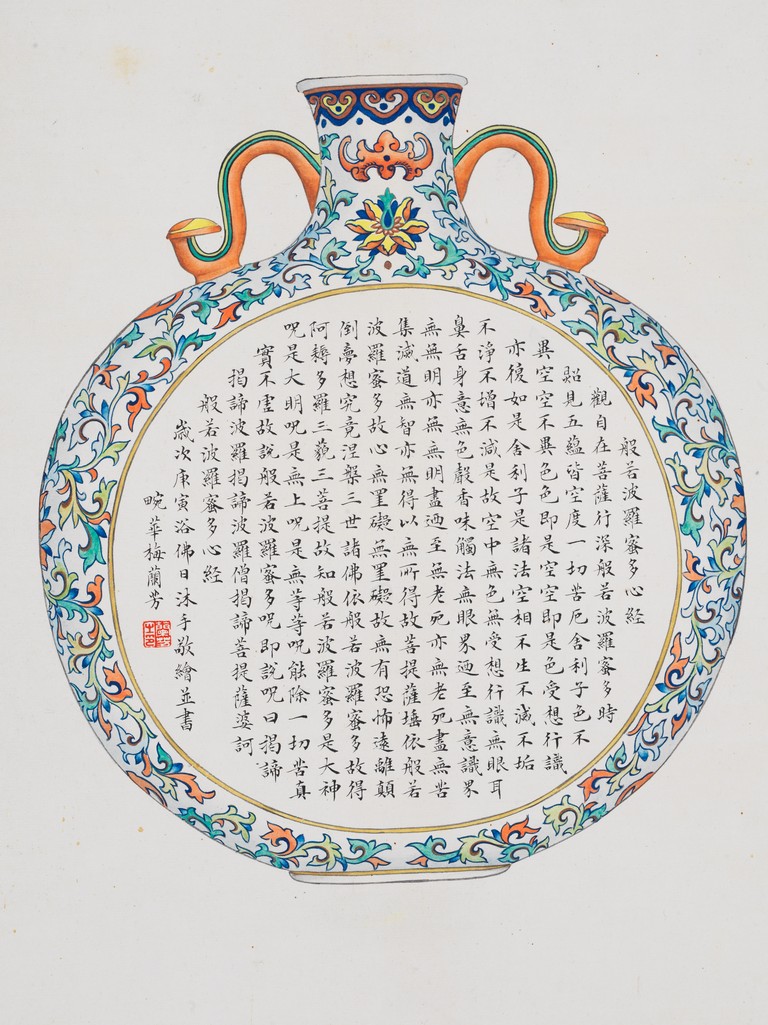 般若波羅蜜多心經
觀自在菩薩行深般若波羅蜜多時
照見五蘊皆空度一切苦厄舍利子色不
異空空不異色色即是空空即是色受想行識
亦復如是舍利子是諸法空相不生不滅不垢
不淨不增不減是故空中無色無受想行識無眼耳
鼻舌身意無色聲香味觸法無眼界迺至無意識界
無無明亦無無明盡迺至無老死亦無老死盡無苦
集滅道無智亦無得以無所得故菩提薩埵依般若
波羅蜜多故心無罣礙無罣礙故無有恐怖遠離顛
倒夢想究竟涅槃三世諸佛依般若波羅蜜多故得
阿耨多羅三藐三菩提故知般若波羅蜜多是大神
呪是大明呪是無上呪是無等等呪能除一切苦真
實不虛故說般若波羅蜜多呪即說呪曰揭諦
揭諦波羅揭諦波羅僧揭諦菩提薩婆訶
般若波羅蜜多心經
歲次庚寅浴佛日沐手敬繪並書
畹華梅蘭芳